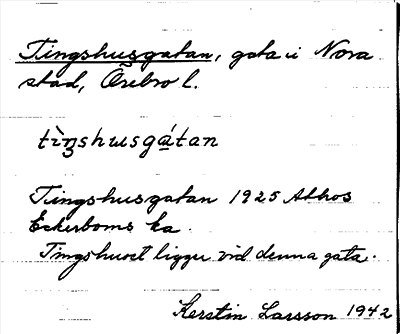 Tingshusgatan, gata i Nora
stad, Örebro l.
tìŋshusgátan
Tingshusgatan 1925 Athos
Eckerboms ka.
Tingshuset ligger vid denna gata.
Kerstin Larsson 1942